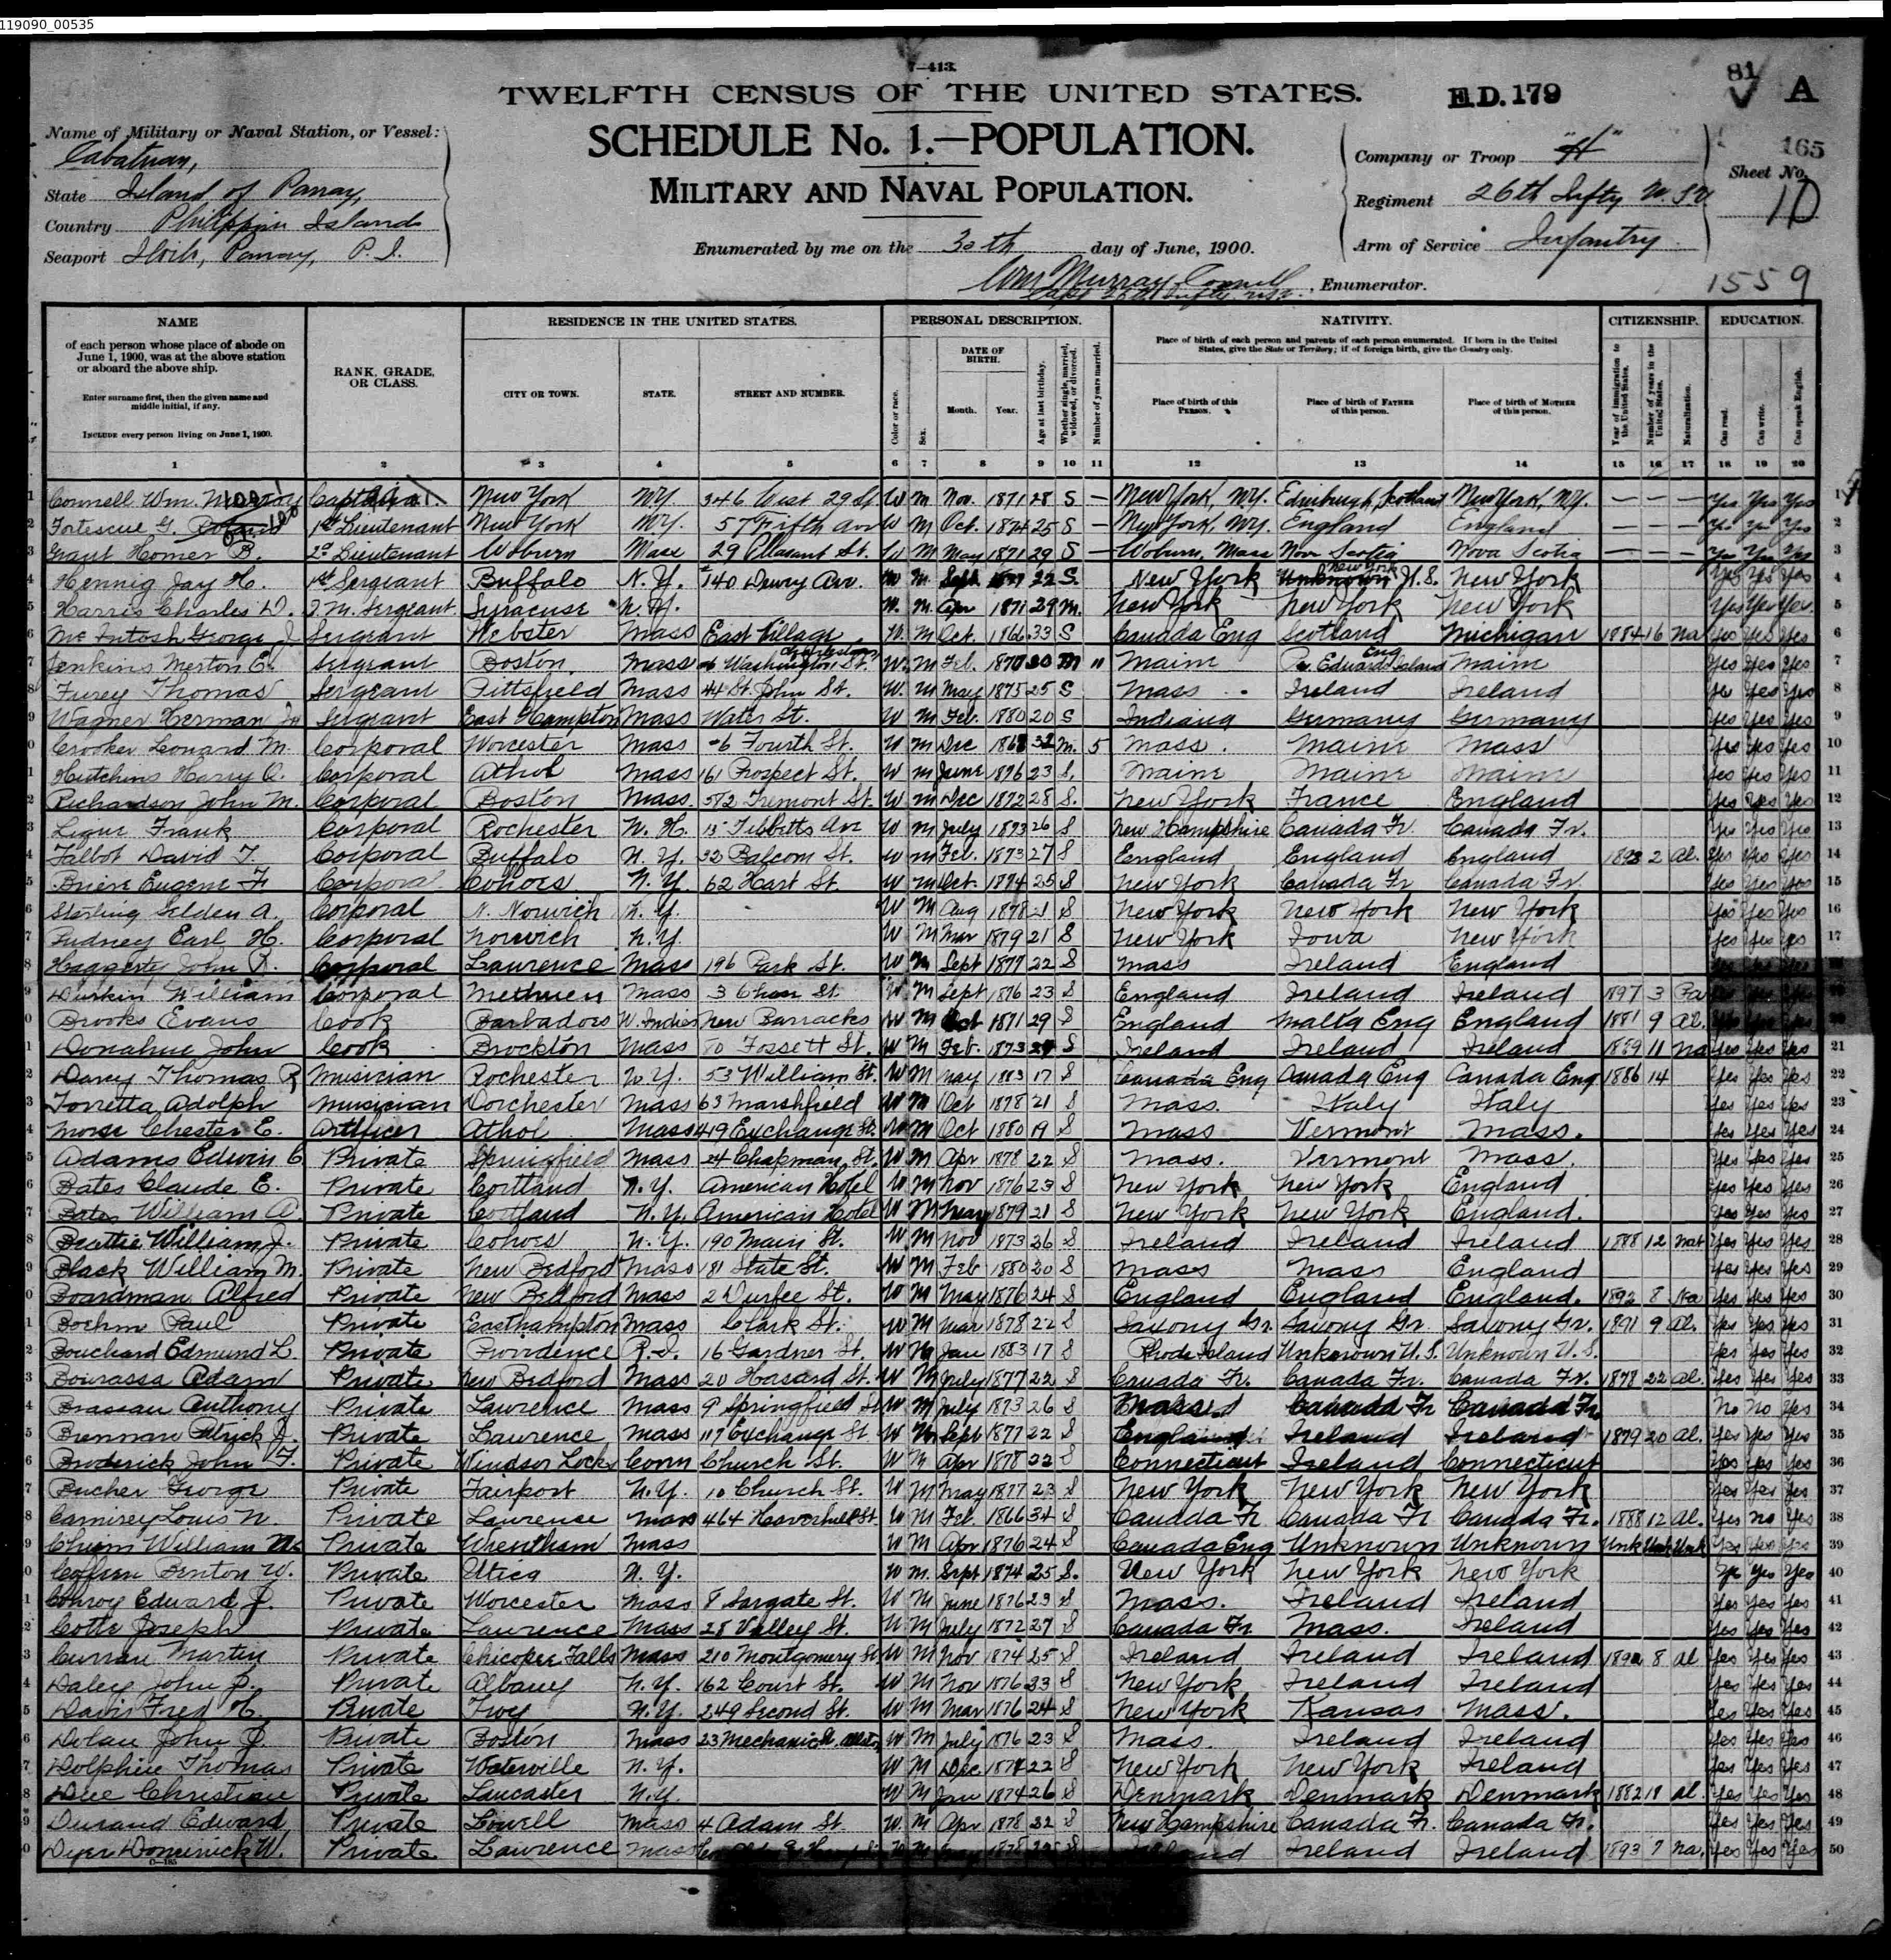 119090_00535
7—413.
TWELFTH CENSUS OF THE UNITED STATES.
E.D. 179
81 A
SCHEDULE No. 1.—POPULATION.
MILITARY AND NAVAL POPULATION.
Name of Military or Naval Station, or Vessel:
Cabatuan,
State Island of Panay,
Country Philippine Islands
Seaport Iloilo, Panay, P. I.
Enumerated by me on the 30th day of June, 1900.
Wm Murray Connell, Enumerator.
Company or Troop "H"
Regiment 26th Infty U.S.V.
Arm of Service Infantry
165
Sheet No.
10
1559
NAME of each person whose place of abode on June 1, 1900, was at the above station or aboard the above ship.
Enter surname first, then the given name and middle initial, if any.
INCLUDE every person living on June 1, 1900.
RANK, GRADE, OR CLASS.
RESIDENCE IN THE UNITED STATES.
CITY OR TOWN. STATE. STREET AND NUMBER.
PERSONAL DESCRIPTION.
Color or race. Sex. DATE OF BIRTH. Month. Year. Age at last birthday. Whether single, married, widowed, or divorced. Number of years married.
NATIVITY.
Place of birth of each person and parents of each person enumerated. If born in the United States, give the State or Territory; if of foreign birth, give the Country only.
Place of birth of this PERSON. Place of birth of FATHER of this person. Place of birth of MOTHER of this person.
CITIZENSHIP.
Year of immigration to the United States. Number of years in the United States. Naturalization.
EDUCATION.
Can read. Can write. Can speak English.
1 2 3 4 5 6 7 8 9 10 11 12 13 14 15 16 17 18 19 20
Connell Wm. Murray Captain New York N.Y. 346 West 29 St W M Nov. 1871 28 S — New York, N.Y. Edinburgh, Scotland New York, N.Y. — — — Yes Yes Yes 1
Fortescue G. 1st Lieutenant New York N.Y. 57 Fifth Ave W M Oct. 1874 25 S — New York, N.Y. England England — — — Yes Yes Yes 2
Grant Homer B. 2d Lieutenant Woburn Mass 29 Pleasant St. W M May 1871 29 S — Woburn, Mass Nova Scotia Nova Scotia — — — Yes Yes Yes 3
Hennig Jay H. 1st Sergeant Buffalo N.Y. 140 Dewey Ave. W M. Sept 22 S. New York Unknown U.S. New York New York Yes Yes Yes 4
Harris Charles D. Q.M. Sergeant Syracuse N.Y. W. M. Apr 1871 29 M. New York New York New York Yes Yes Yes 5
McIntosh George J Sergeant Webster Mass East Village W. M Oct. 1866 33 S Canada Eng Scotland Michigan 1884 16 Na Yes Yes Yes 6
Jenkins Merton E. Sergeant Boston Mass 6 Washington St. Charlestown W. M Feb. 1870 30 M 11 Maine P. Edward Island Eng Maine Yes Yes Yes 7
Furey Thomas Sergeant Pittsfield Mass 44 St. John St. W. M May 1875 25 S Mass Ireland Ireland Yes Yes Yes 8
Wagner Herman Jr Sergeant East Hampton Mass Water St. W M Feb. 1880 20 S Indiana Germany Germany Yes Yes Yes 9
Crooker Leonard M. Corporal Worcester Mass 6 Fourth St. W M Dec 1868 32 M. 5 Mass. Maine Mass Yes Yes Yes 10
Hutchins Harry O. Corporal Athol Mass 161 Prospect St. W M June 1876 23 S. Maine Maine Maine Yes Yes Yes 11
Richardson John M. Corporal Boston Mass. 582 Tremont St. W M Dec 1872 28 S. New York France England Yes Yes Yes 12
Frank Corporal Rochester N.H. 15 Tibbetts Ave W M July 1873 26 S New Hampshire Canada Fr. Canada Fr. Yes Yes Yes 13
Talbot David T. Corporal Buffalo N.Y. 32 Balcom St. W M Feb. 1873 27 S England England England 1898 2 Al. Yes Yes Yes 14
Briere Eugene F. Corporal Cohoes N.Y. 62 Hart St. W M Oct. 1874 25 S New York Canada Fr Canada Fr. Yes Yes Yes 15
Sterling Selden A. Corporal N. Norwich N.Y. W M Aug 1878 21 S New York New York New York Yes Yes Yes 16
Pudney Earl H. Corporal Norwich N.Y. W M Mar 1879 21 S New York Iowa New York Yes Yes Yes 17
Haggerty John R. Corporal Lawrence Mass 196 Park St. W M Sept 1877 22 S Mass Ireland England
Durkin William Corporal Methuen Mass 3 Chase St W. M Sept 1876 23 S England Ireland Ireland 1897 3 Pa
Brooks Evans Cook Barbadoes W. Indies New Barracks W M Oct 1871 29 S England Malta Eng England 1881 9 Al.
Donahue John Cook Brockton Mass 80 Fossett St. W M Feb. 1873 27 S Ireland Ireland Ireland 1889 11 Na Yes Yes Yes 21
Darcy Thomas R Musician Rochester N.Y. 53 William St. W M May 1883 17 S Canada Eng Canada Eng Canada Eng 1886 14 Yes Yes Yes 22
Torretta Adolph Musician Dorchester Mass 63 Marshfield W M Oct 1878 21 S Mass. Italy Italy Yes Yes Yes 23
Morse Chester E. Artificer Athol Mass 419 Exchange St. W M Oct 1880 19 S Mass Vermont Mass. Yes Yes Yes 24
Adams Edwin C Private Springfield Mass 24 Chapman St. W M Apr 1878 22 S Mass. Vermont Mass. Yes Yes Yes 25
Bates Claude E. Private Cortland N.Y. American Hotel W M Nov 1876 23 S New York New York England Yes Yes Yes 26
Bates William A. Private Cortland N.Y. American Hotel W M May 1879 21 S New York New York England. Yes Yes Yes 27
Beattie William J. Private Cohoes N.Y. 190 Main St. W M Nov 1873 26 S Ireland Ireland Ireland 1888 12 Nat Yes Yes Yes 28
Black William M. Private New Bedford Mass 181 State St. W M Feb 1880 20 S Mass Mass England Yes Yes Yes 29
Boardman Alfred Private New Bedford Mass 2 Durfee St. W M May 1876 24 S England England England. 1892 8 Na Yes Yes Yes 30
Boehm Paul Private Easthampton Mass Clark St. W M Mar 1878 22 S Saxony Gr. Saxony Gr. Saxony Gr. 1891 9 Al. Yes Yes Yes 31
Bouchard Edmund L. Private Providence R.I. 16 Gardner St. W M Jan 1883 17 S Rhode Island Unknown U.S. Unknown U.S. Yes Yes Yes 32
Bourassa Adam Private New Bedford Mass 20 Hasard St. W M July 1877 22 S Canada Fr. Canada Fr. Canada Fr. 1878 22 Al. Yes Yes Yes 33
Brassau Anthony Private Lawrence Mass 9 Springfield St W M July 1873 26 S Mass. Canada Fr Canada Fr. No No Yes 34
Brennan Patrick J. Private Lawrence Mass 117 Exchange St W M Sept 1877 22 S England Ireland Ireland 1879 20 Al. Yes Yes Yes 35
Broderick John F. Private Windsor Locks Conn Church St. W M Apr 1878 22 S Connecticut Ireland Connecticut Yes Yes Yes 36
Bucher George Private Fairport N.Y. 10 Church St. W M May 1877 23 S New York New York New York Yes Yes Yes 37
Camirey Louis N. Private Lawrence Mass 464 Haverhill St. W M Feb. 1866 34 S Canada Fr Canada Fr Canada Fr. 1888 12 Al. Yes No Yes 38
William Private Wrentham Mass W M Apr 1876 24 S Canada Eng Unknown Unknown Unk Unk Unk Yes Yes Yes 39
Coffren Benton W. Private Utica N.Y. W M. Sept 1874 25 S. New York New York New York Yes Yes Yes 40
Conroy Edward J. Private Worcester Mass 8 Sargate St. W M June 1876 23 S Mass. Ireland Ireland Yes Yes Yes 41
Cotte Joseph Private Lawrence Mass 28 Valley St. W M July 1872 27 S Canada Fr. Mass. Ireland Yes Yes Yes 42
Curran Martin Private Chicopee Falls Mass 210 Montgomery St W M Nov 1874 25 S Ireland Ireland Ireland 1892 8 Al Yes Yes Yes 43
Daley John P. Private Albany N.Y. 162 Court St. W M Nov 1876 23 S New York Ireland Ireland Yes Yes Yes 44
Davis Fred H. Private Troy N.Y. 249 Second St. W M Mar 1876 24 S New York Kansas Mass. Yes Yes Yes 45
Dolan John J. Private Boston Mass 23 Mechanic St. W M July 1876 23 S Mass. Ireland Ireland Yes Yes Yes 46
Dolphin Thomas Private Waterville N.Y. W M Dec 1877 22 S New York New York Ireland Yes Yes Yes 47
Due Christian Private Lancaster N.Y. W M Jan 1874 26 S Denmark Denmark Denmark 1882 18 Al. Yes Yes Yes 48
Durand Edward Private Lowell Mass 4 Adam St. W. M Apr 1878 22 S New Hampshire Canada Fr. Canada Fr. Yes Yes Yes 49
Dyer Dominick W. Private Lawrence Mass Ireland Ireland Ireland 1893 7 Na. Yes Yes Yes 50